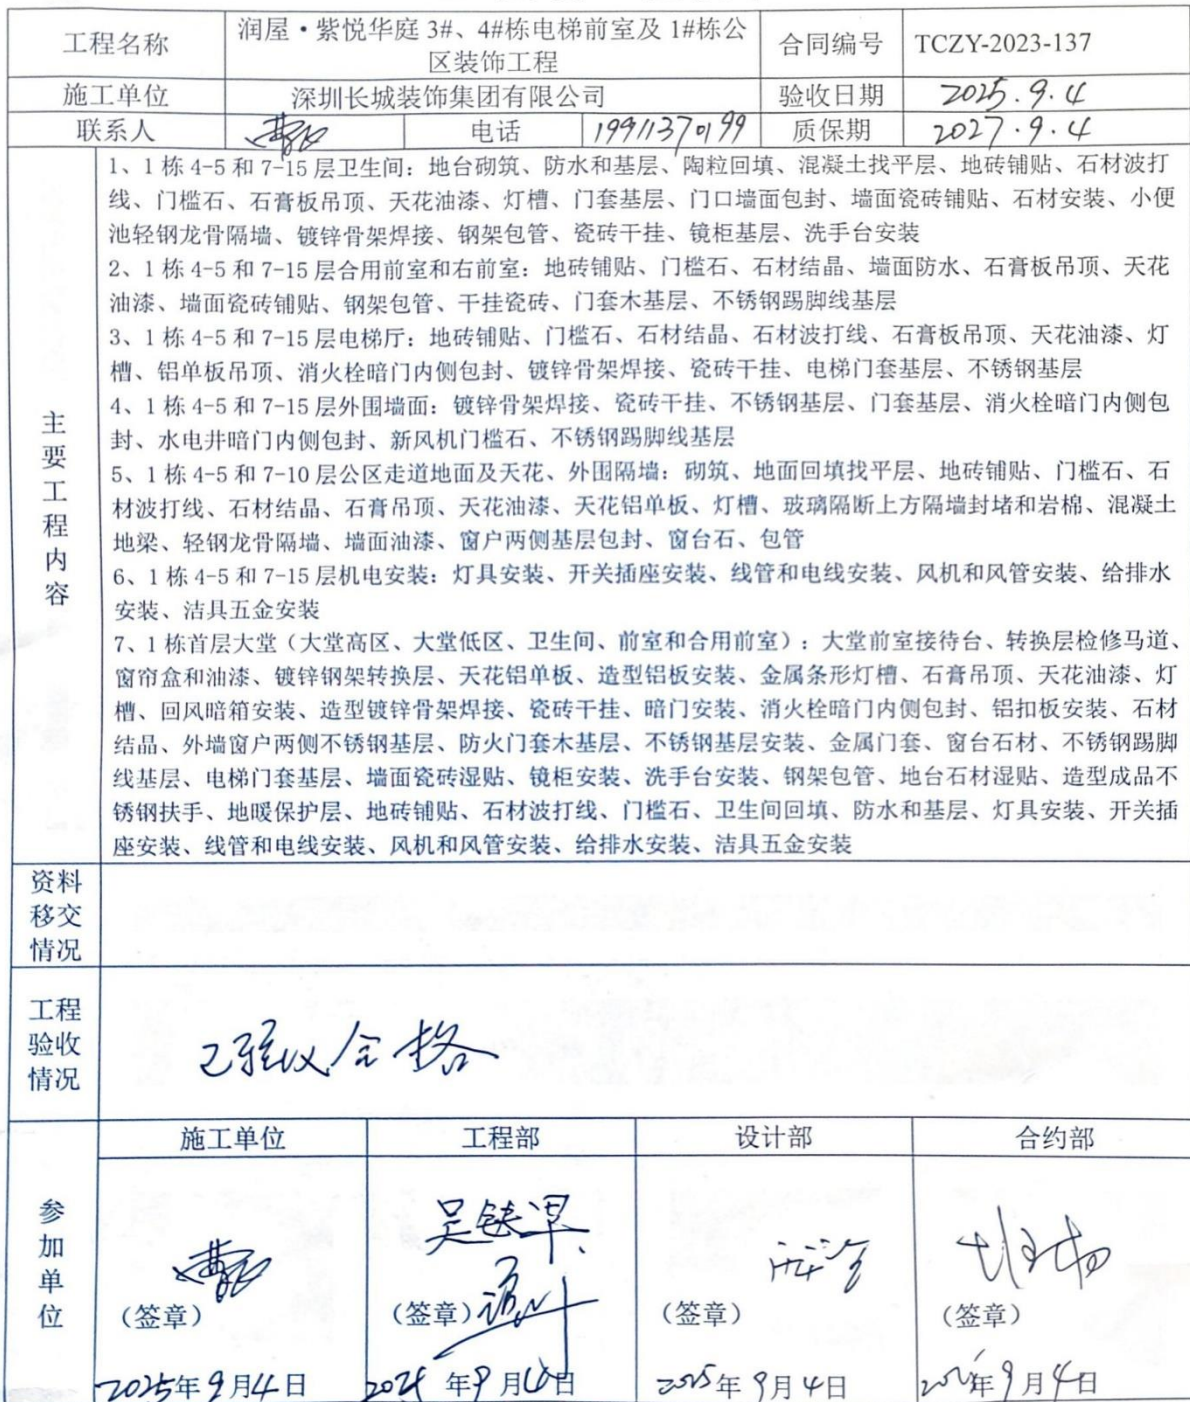 工程名称
润屋·紫悦华庭 3#、4#栋电梯前室及 1#栋公
区装饰工程
合同编号
TCZY-2023-137
施工单位
深圳长城装饰集团有限公司
验收日期
2025.9.4
联系人
电话
19911370199
质保期
2027.9.4
主要工程内容
1、1 栋 4-5 和 7-15 层卫生间：地台砌筑、防水和基层、陶粒回填、混凝土找平层、地砖铺贴、石材波打
线、门槛石、石膏板吊顶、天花油漆、灯槽、门套基层、门口墙面包封、墙面瓷砖铺贴、石材安装、小便
池轻钢龙骨隔墙、镀锌骨架焊接、钢架包管、瓷砖干挂、镜柜基层、洗手台安装
2、1 栋 4-5 和 7-15 层合用前室和右前室：地砖铺贴、门槛石、石材结晶、墙面防水、石膏板吊顶、天花
油漆、墙面瓷砖铺贴、钢架包管、干挂瓷砖、门套木基层、不锈钢踢脚线基层
3、1 栋 4-5 和 7-15 层电梯厅：地砖铺贴、门槛石、石材结晶、石材波打线、石膏板吊顶、天花油漆、灯
槽、铝单板吊顶、消火栓暗门内侧包封、镀锌骨架焊接、瓷砖干挂、电梯门套基层、不锈钢基层
4、1 栋 4-5 和 7-15 层外围墙面：镀锌骨架焊接、瓷砖干挂、不锈钢基层、门套基层、消火栓暗门内侧包
封、水电井暗门内侧包封、新风机门槛石、不锈钢踢脚线基层
5、1 栋 4-5 和 7-10 层公区走道地面及天花、外围隔墙：砌筑、地面回填找平层、地砖铺贴、门槛石、石
材波打线、石材结晶、石膏吊顶、天花油漆、天花铝单板、灯槽、玻璃隔断上方隔墙封堵和岩棉、混凝土
地梁、轻钢龙骨隔墙、墙面油漆、窗户两侧基层包封、窗台石、包管
6、1 栋 4-5 和 7-15 层机电安装：灯具安装、开关插座安装、线管和电线安装、风机和风管安装、给排水
安装、洁具五金安装
7、1 栋首层大堂（大堂高区、大堂低区、卫生间、前室和合用前室）：大堂前室接待台、转换层检修马道、
窗帘盒和油漆、镀锌钢架转换层、天花铝单板、造型铝板安装、金属条形灯槽、石膏吊顶、天花油漆、灯
槽、回风暗箱安装、造型镀锌骨架焊接、瓷砖干挂、暗门安装、消火栓暗门内侧包封、铝扣板安装、石材
结晶、外墙窗户两侧不锈钢基层、防火门套木基层、不锈钢基层安装、金属门套、窗台石材、不锈钢踢脚
线基层、电梯门套基层、墙面瓷砖湿贴、镜柜安装、洗手台安装、钢架包管、地台石材湿贴、造型成品不
锈钢扶手、地暖保护层、地砖铺贴、石材波打线、门槛石、卫生间回填、防水和基层、灯具安装、开关插
座安装、线管和电线安装、风机和风管安装、给排水安装、洁具五金安装
资料
移交
情况
工程
验收
情况
已验收合格
参加单位
施工单位
工程部
设计部
合约部
（签章）
（签章）
（签章）
（签章）
2025年9月4日
年9月日
2025年9月4日
年9月4日